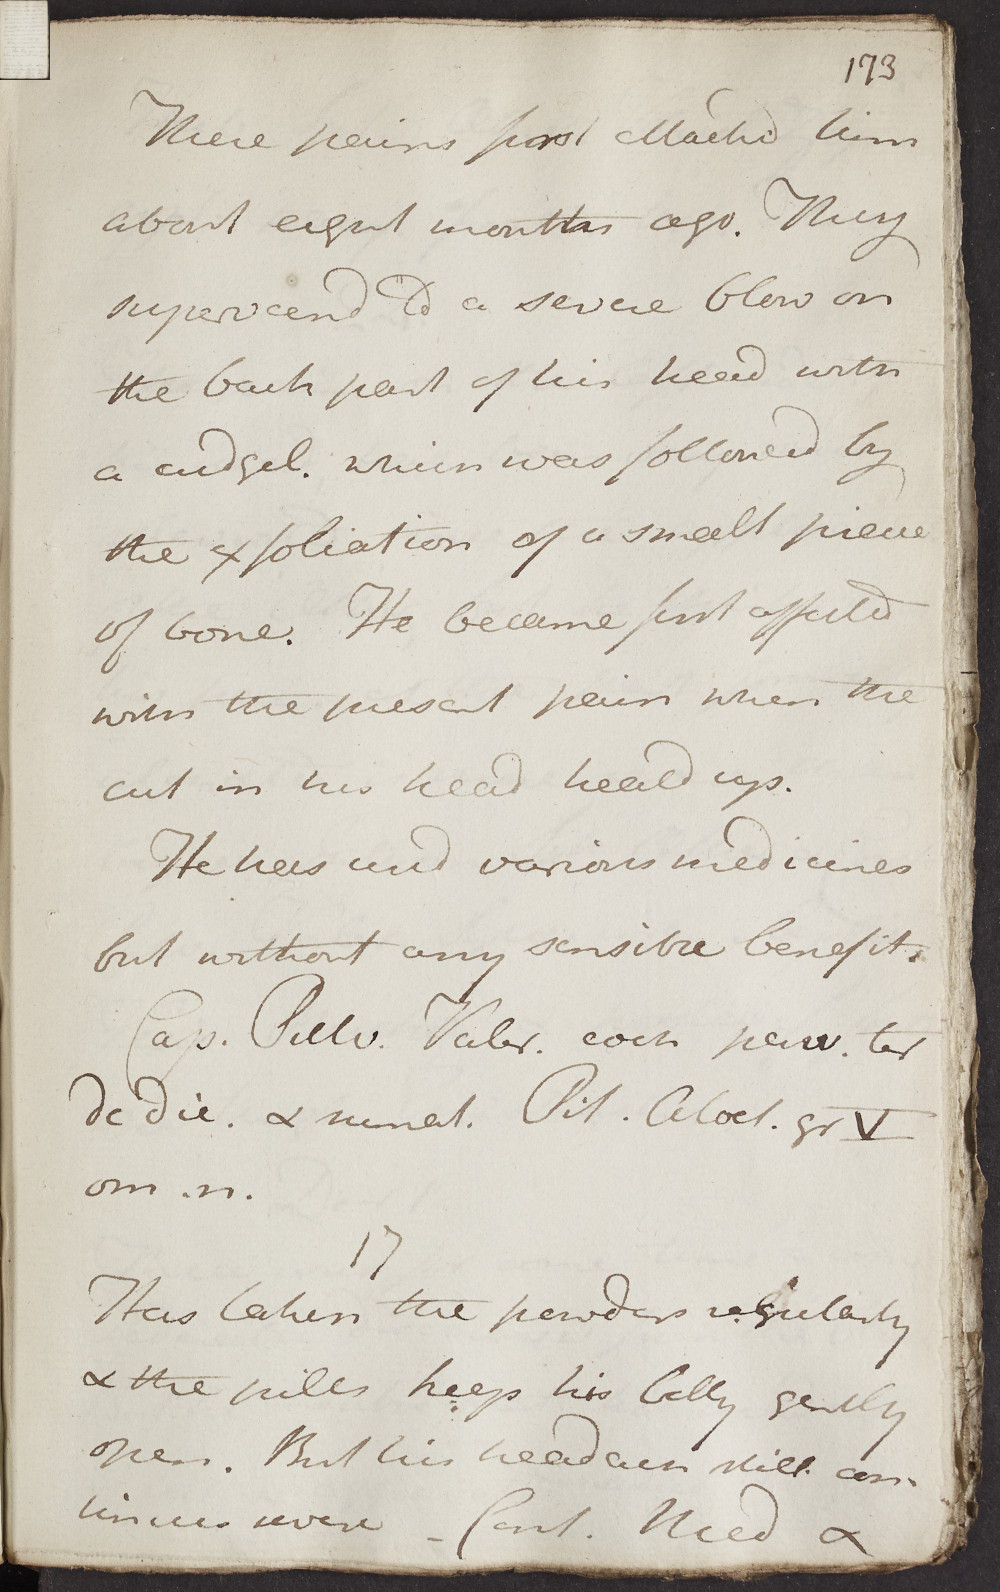 173
These pains first attackd him
about eight months ago. They
supervend to a severe blow on
the back part of his head with
a cudgel. which was followed by
the exfoliation of a small piece
of bone. He became first affected
with the present pain when the
cut in his head heald up.
He has used various medicines
but without any sensible benefit.
Cap. Pulv. Valer. coch parv. ter
de die. & sumat. Pil. Aloet. gr V
om .n.
17
Has taken the powders regularly
& the pills keep his belly gently
open. But his headach still con-
tinues severe - Cont. Med &